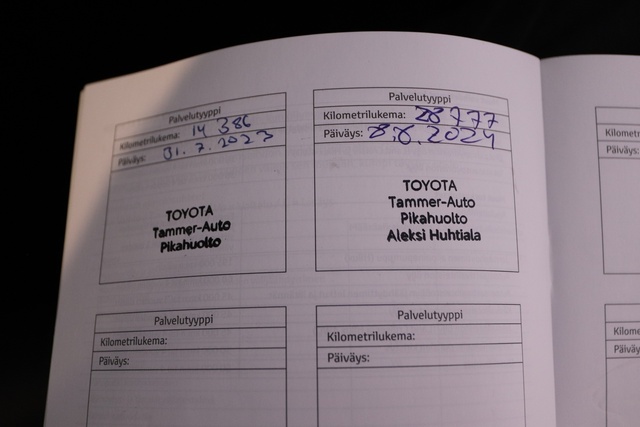 Palvelutyyppi
Kilometrilukema: 14 386
Päiväys: 31.7.2023
TOYOTA
Tammer-Auto
Pikahuolto
Palvelutyyppi
Kilometrilukema: 28777
Päiväys: 8.8.2024
TOYOTA
Tammer-Auto
Pikahuolto
Aleksi Huhtiala
Palvelutyyppi
Kilometrilukema:
Päiväys:
Palvelutyyppi
Kilometrilukema:
Päiväys: